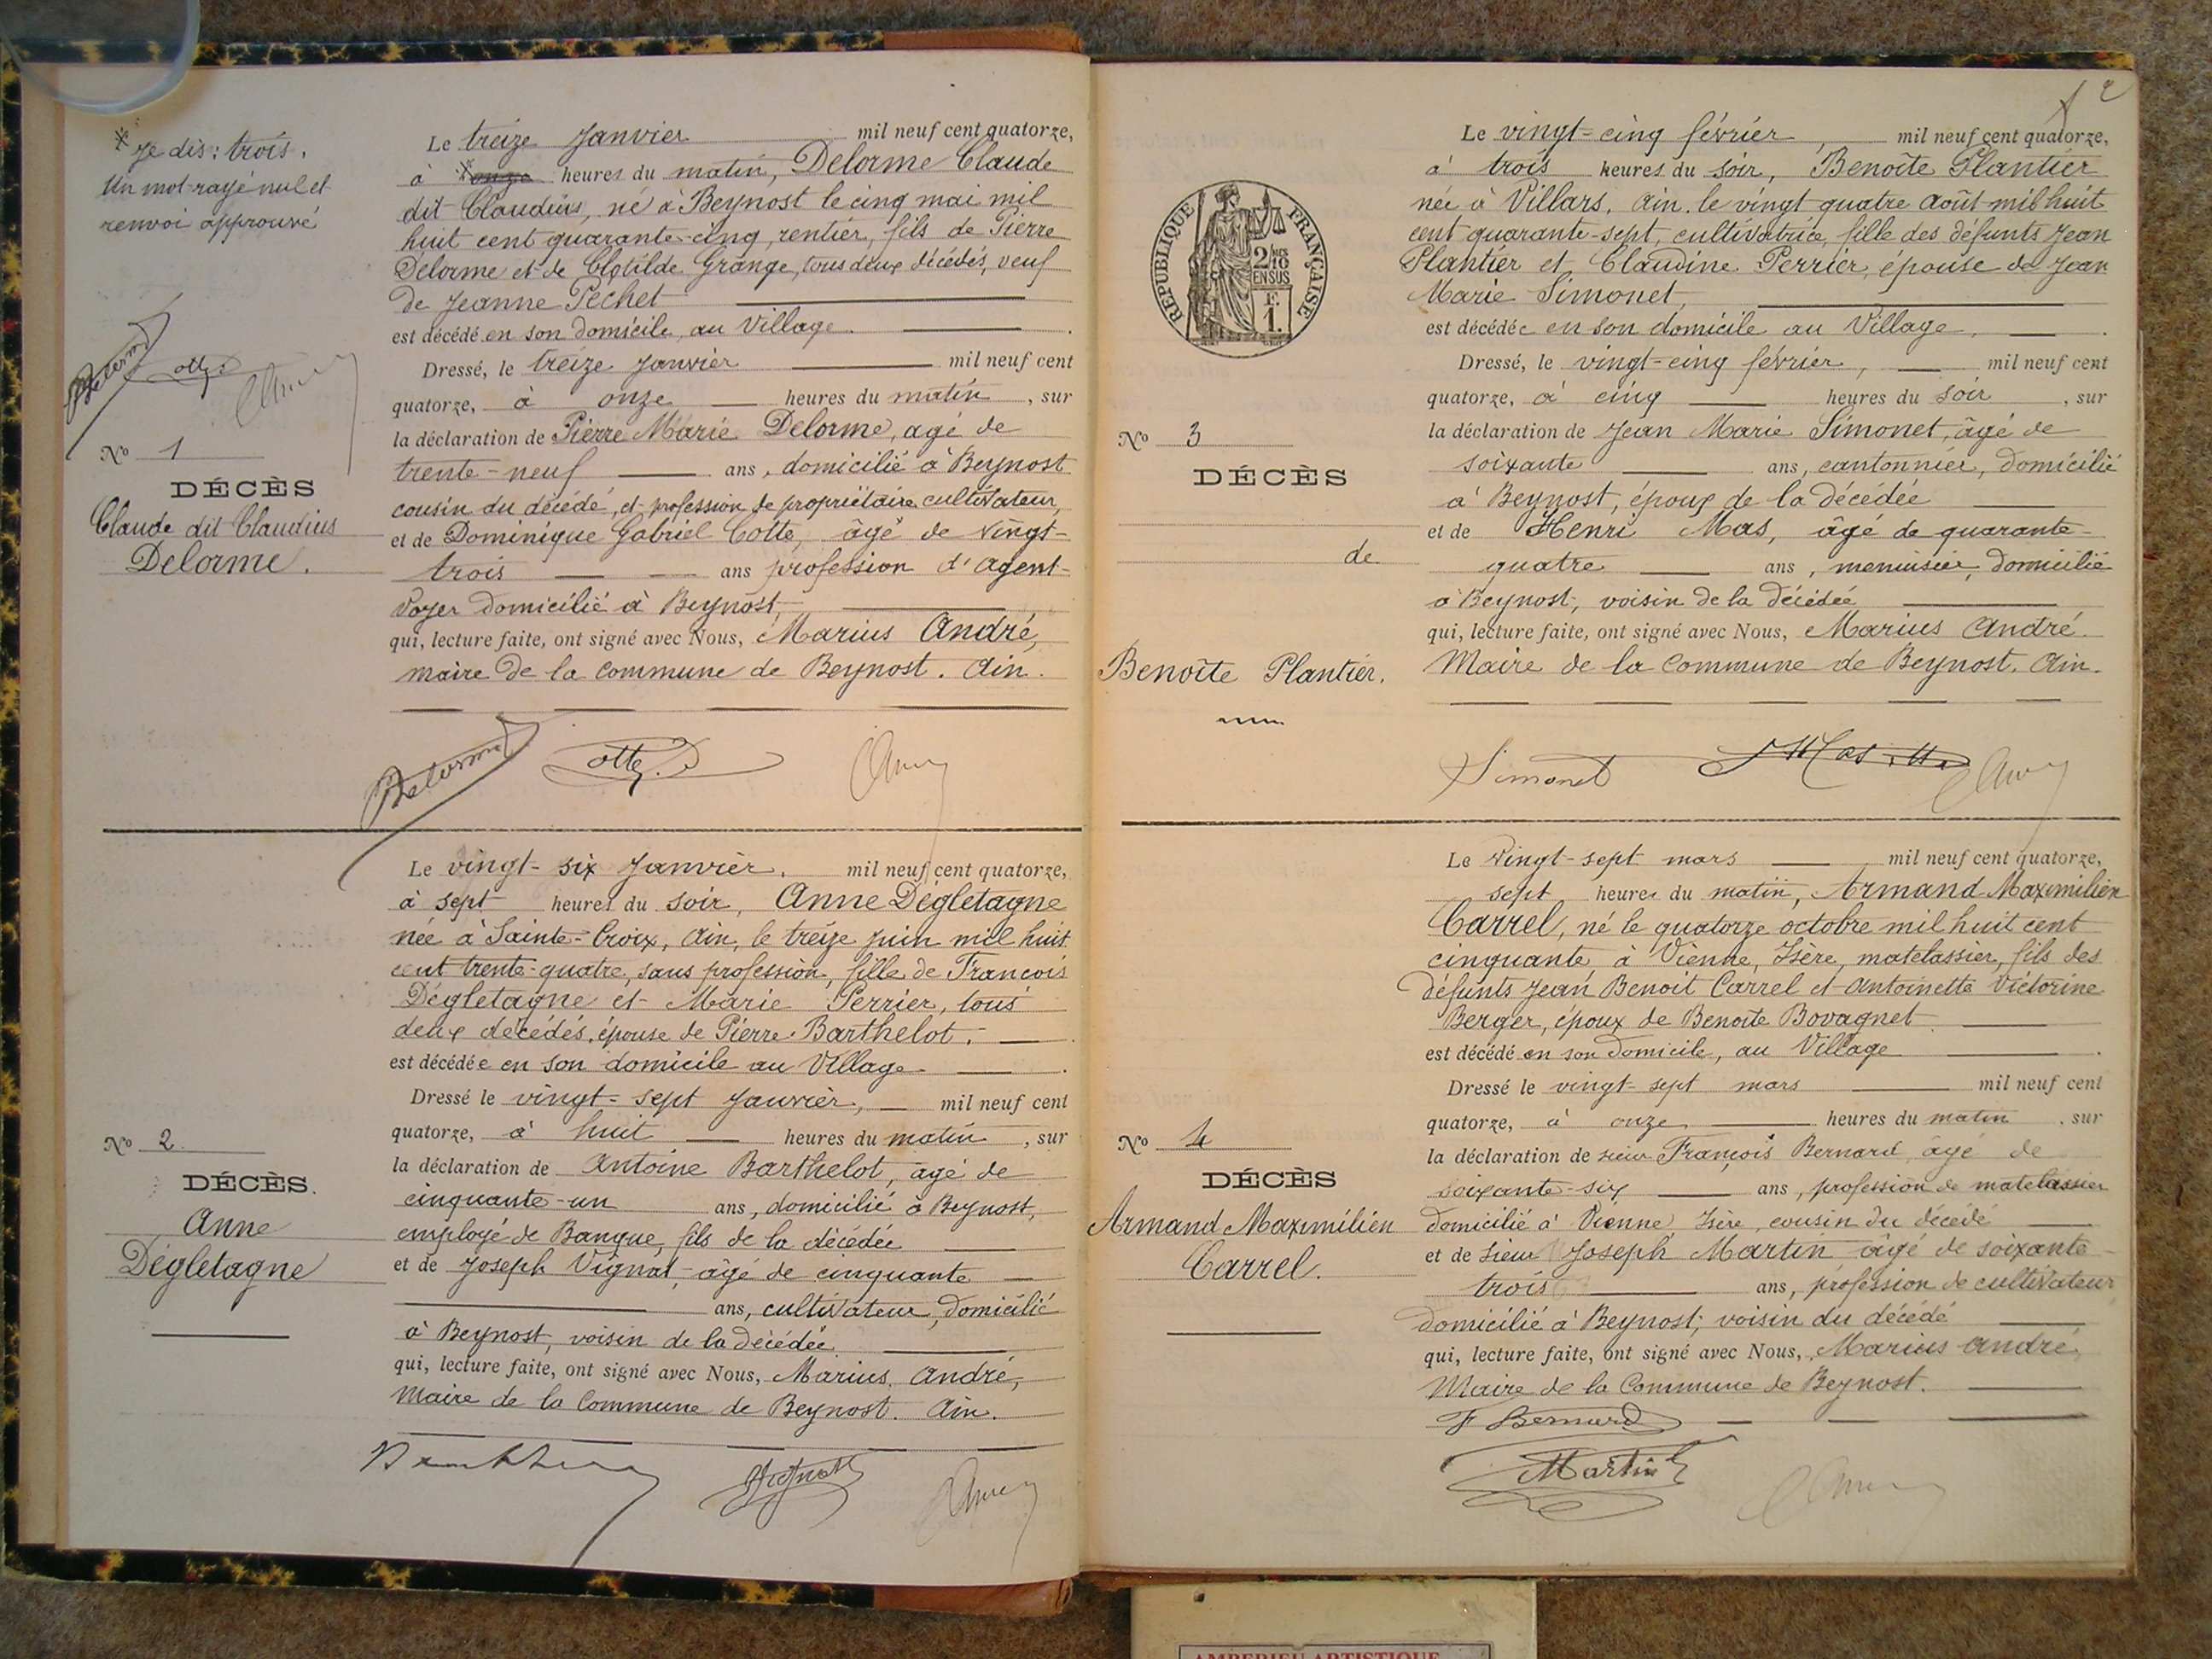 * Je dis : trois.
Un mot rayé nul et
renvoi approuvé
Delorme
Cotte D
No 1
DÉCÈS
Claude dit Claudius
Delorme.
Le treize Janvier mil neuf cent quatorze,
à * onze heures du matin, Delorme Claude
dit Claudius, né à Beynost le cinq mai mil
huit cent quarante-cinq, rentier, fils de Pierre
Delorme et de Clotilde Grange, tous deux décédés, veuf
de Jeanne Pechet
est décédé en son domicile, au Village.
Dressé, le treize Janvier mil neuf cent
quatorze, à onze heures du matin, sur
la déclaration de Pierre Marie Delorme, agé de
trente-neuf ans, domicilié à Beynost
cousin du décédé, et profession de propriétaire cultivateur,
et de Dominique Gabriel Cotte, âgé de vingt-
trois ans profession d'agent-
voyer domicilié à Beynost,
qui, lecture faite, ont signé avec Nous, Marius André,
maire de la commune de Beynost. Ain.
Delorme
Cotte D
No 2
DÉCÈS.
Anne
Dégletagne
Le vingt-six Janvier, mil neuf cent quatorze,
à sept heures du soir, Anne Dégletagne
née à Sainte-Croix, Ain, le treize juin mil huit
cent trente-quatre, sans profession, fille de François
Dégletagne et Marie Perrier, tous
deux décédés, épouse de Pierre Barthelot.
est décédée en son domicile au Village
Dressé le vingt-sept Janvier, mil neuf cent
quatorze, à huit heures du matin, sur
la déclaration de Antoine Barthelot, âgé de
cinquante-un ans, domicilié à Beynost,
employé de Banque, fils de la décédée
et de Joseph Vignat, âgé de cinquante
ans, cultivateur, domicilié
à Beynost, voisin de la décédée
qui, lecture faite, ont signé avec Nous, Marius André,
Maire de la Commune de Beynost. Ain.
Vignat
2
RÉPUBLIQUE FRANÇAISE
2/10
EN SUS
F.
1.
No 3
DÉCÈS
de
Benoîte Plantier.
Le vingt-cinq février, mil neuf cent quatorze,
à trois heures du soir, Benoîte Plantier
née à Villars. Ain. le vingt quatre Août mil huit
cent quarante-sept, cultivatrice, fille des défunts Jean
Plantier et Claudine Perrier, épouse de Jean
Marie Simonet,
est décédée en son domicile au Village,
Dressé, le vingt-cinq février, mil neuf cent
quatorze, à cinq heures du soir, sur
la déclaration de Jean Marie Simonet, âgé de
soixante ans, cantonnier, domicilié
à Beynost, époux de la décédée
et de Henri Mas, âgé de quarante-
quatre ans, menuisier, domicilié
à Beynost, voisin de la décédée
qui, lecture faite, ont signé avec Nous, Marius André.
Maire de la Commune de Beynost. Ain.
Simonet
Mas
No 4
DÉCÈS
Armand Maximilien
Carrel.
Le vingt-sept mars mil neuf cent quatorze,
sept heures du matin, Armand Maximilien
Carrel, né le quatorze octobre mil huit cent
cinquante à Vienne, Isère, matelassier, fils des
défunts Jean Benoit Carrel et Antoinette Victorine
Berger, époux de Benoite Bovagnet
est décédé en son domicile, au Village
Dressé le vingt-sept mars mil neuf cent
quatorze, à onze heures du matin, sur
la déclaration de sieur François Bernard âgé de
soixante-six ans, profession de matelassier
domicilié à Vienne, Isère, cousin du décédé
et de sieur Joseph Martin âgé de soixante
trois ans, profession de cultivateur
domicilié à Beynost, voisin du décédé
qui, lecture faite, ont signé avec Nous, Marius André
Maire de la Commune de Beynost.
F Bernard
Martin
AMBERIEU ARTISTIQUE